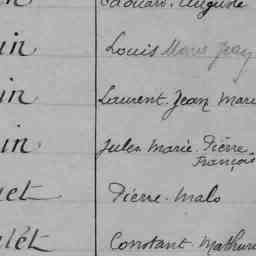 Edouard. Auguste
in Louis Marie Jean
in Laurent. Jean Mari
in Jules Marie. Pierre
François
uet Pierre. Malo
lét Constant. Mathuri